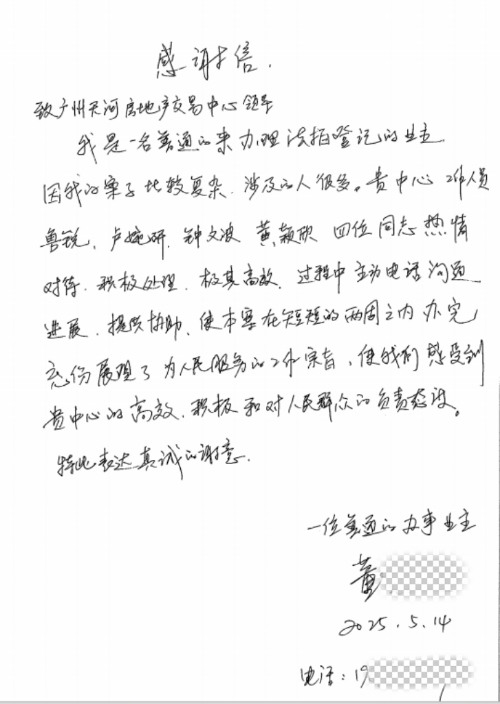 感谢信.
致广州天河房地产交易中心领导
我是一名普通的来办理法拍登记的业主
因我的案子比较复杂.涉及的人很多。贵中心工作人员
鲁锐.卢婉妍.钟文波 黄颖欣 四位同志热情
对待.积极处理.极其高效.过程中主动电话沟通
进展.提供协助.使本案在短短的两周之内办完
充份展现了为人民服务的工作宗旨,使我们感受到
贵中心的高效.积极和对人民群众的负责态度。
特此表达真诚的谢意.
一位普通的办事业主
董
2025.5.14
电话:19